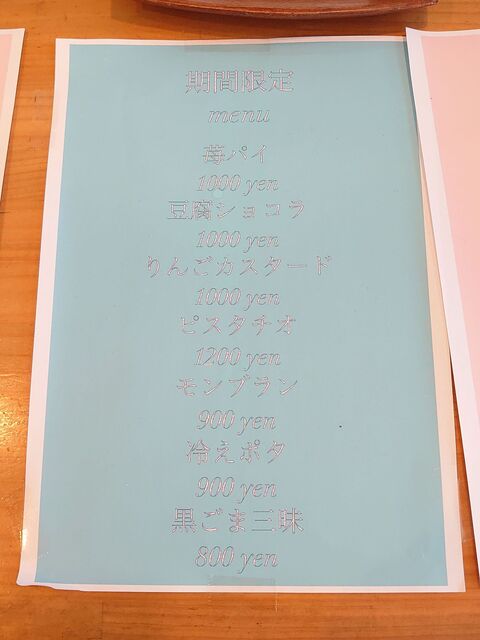 期間限定
menu
苺パイ
1000 yen
豆腐ショコラ
1000 yen
りんごカスタード
1000 yen
ピスタチオ
1200 yen
モンブラン
900 yen
冷えポタ
900 yen
黒ごま三昧
800 yen